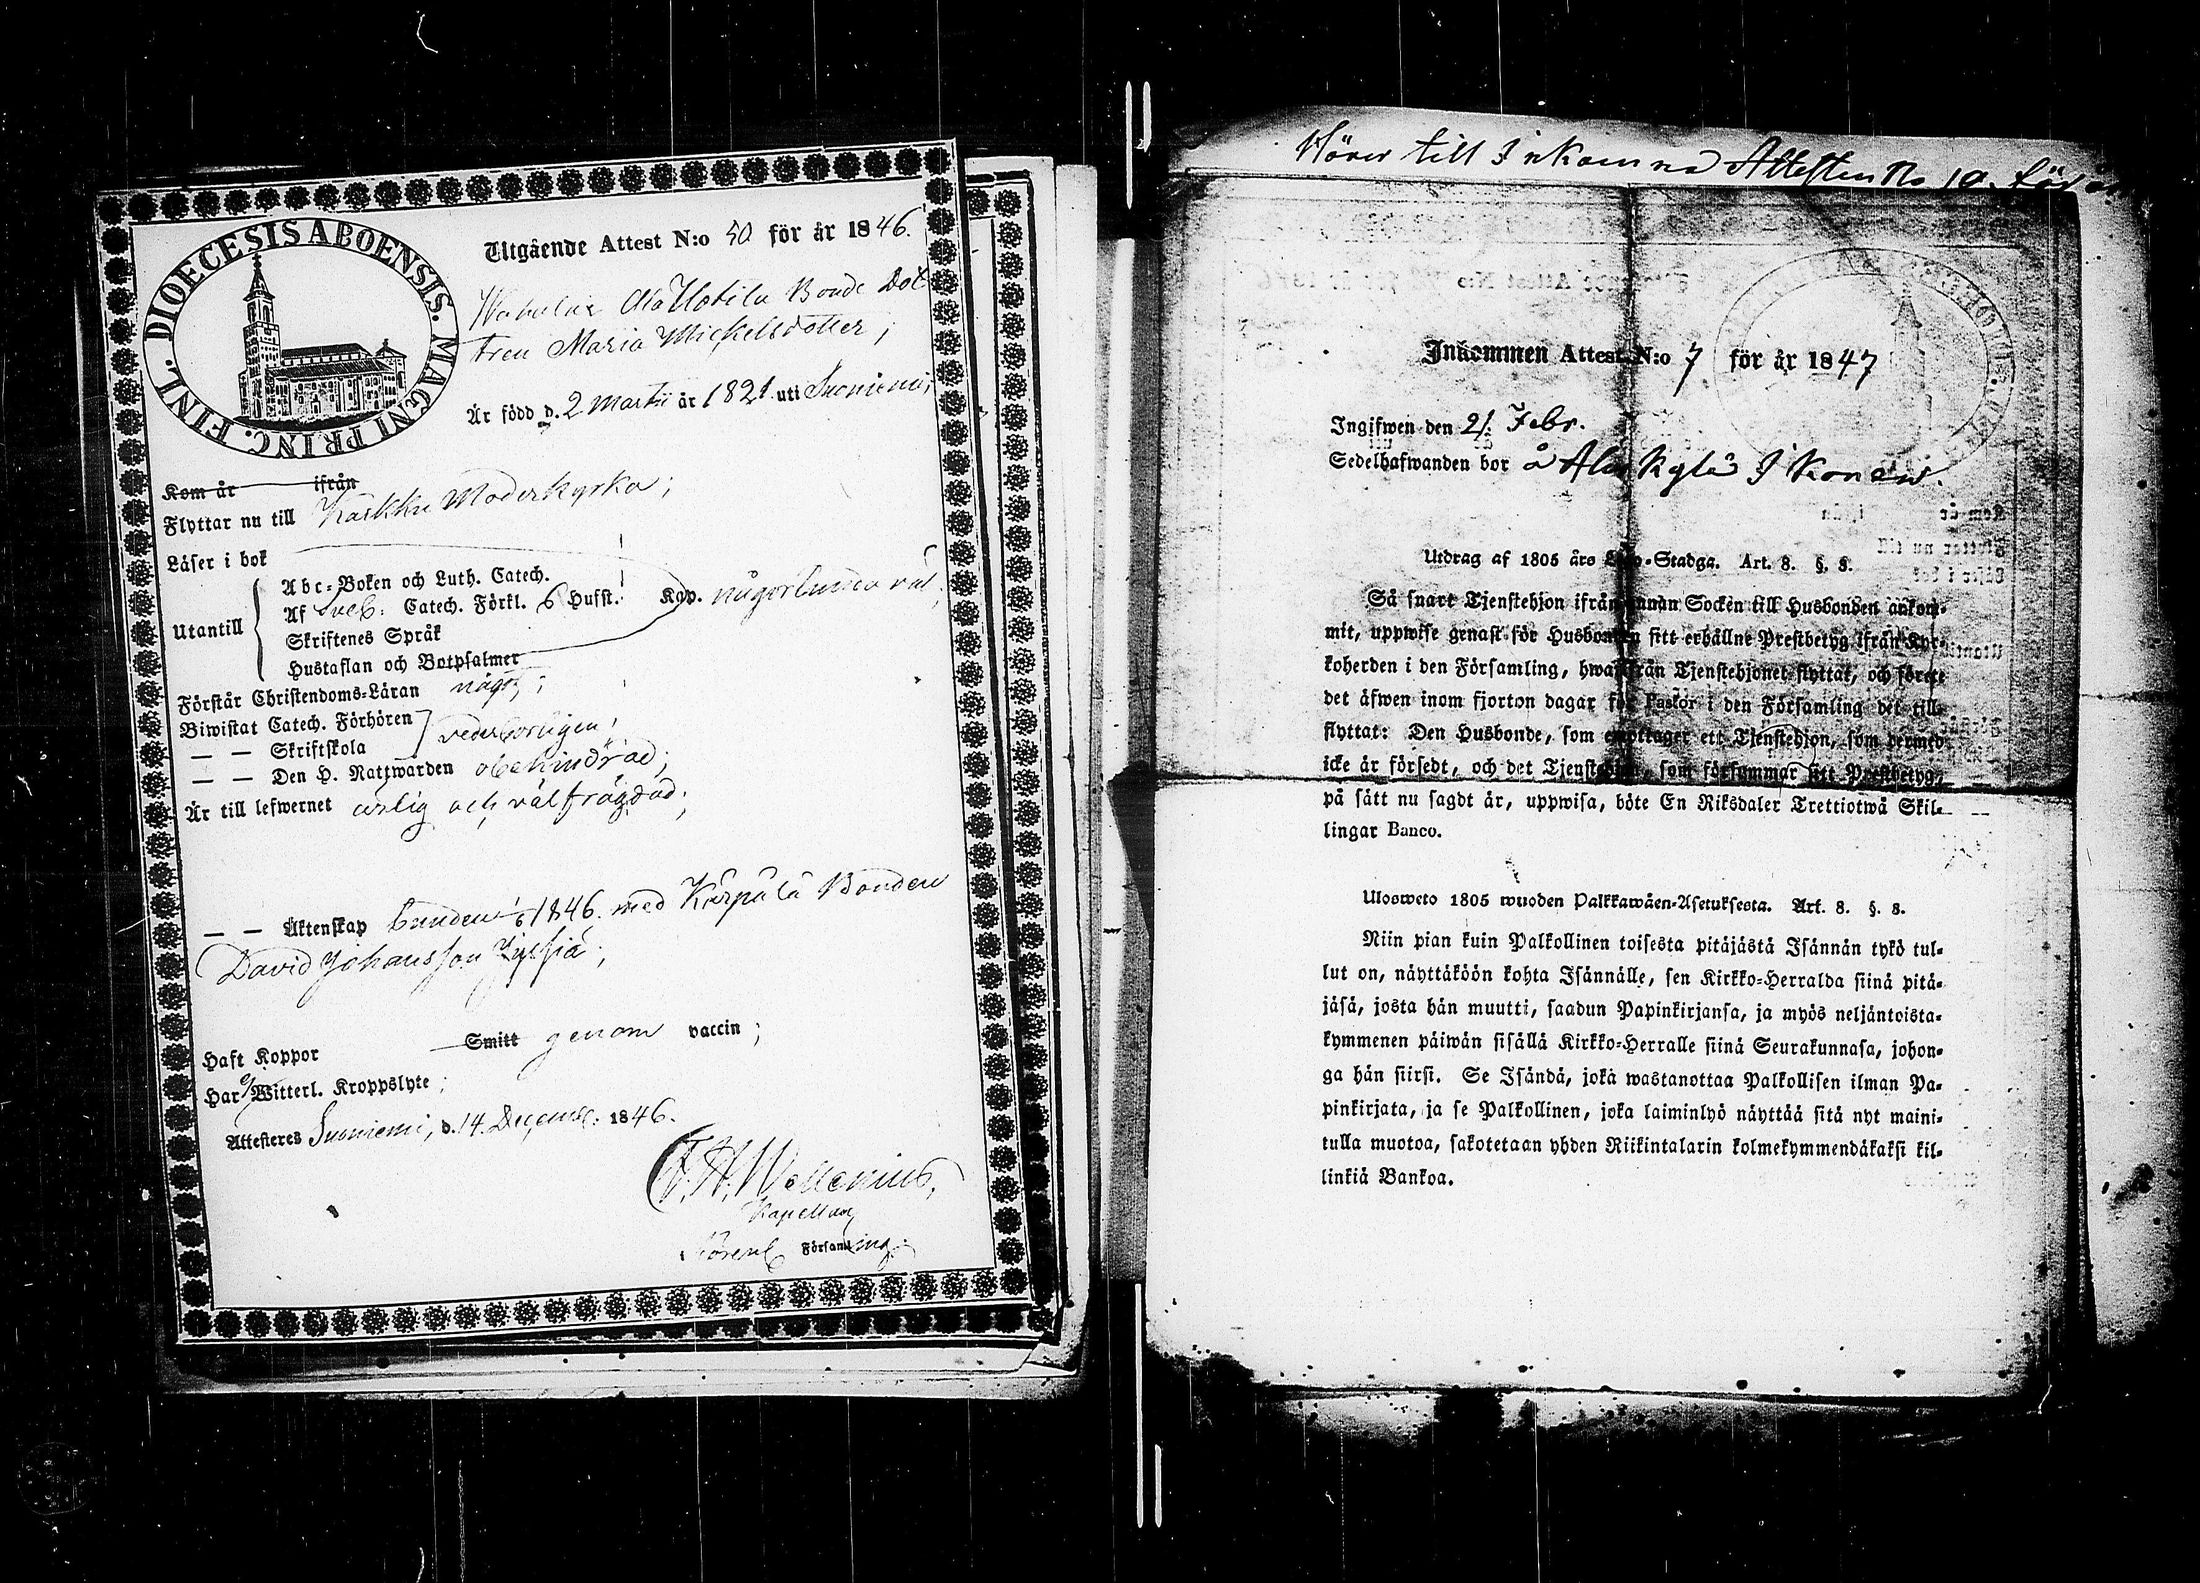 DIOECESIS ABOENSIS. MAGNI PRINC. FINL.
Utgående Attest N:o 50 för år 1846.
Bonde Dot
tren Maria Mickelsdotter;
Är född d. 2 Martii år 1821 uti Suoniemi;
Kom år ifrån
Flyttar nu till Karkku Moderkyrka;
Läser i bok
Utantill
Abc-Boken och Luth. Catech.
Af Sveb: Catech. Förkl. 6 Hufst. Kap. någorlunda väl;
Skriftenes Språk
Hustaflan och Botpsalmer
Förstår Christendoms-Läran något;
Biwistat Catech. Förhören
— — Skriftskola vederbörligen;
— — Den H. Nattwarden obehindrad;
Är till lefwernet ärlig och välfrägdad;
— — Äktenskap bunden 1846 med Kärpälä Bonden
David Johansson
Haft Koppor Smitt genom vaccin;
Har Witterl. Kroppslyte;
Attesteres Suoniemi, d. 14 Decemb: 1846.
Wallenius,
Kapellan
Förenl. Församling.
Hörer till Inkomna Attesten No 10. för
Inkommen Attest N:o 7 för år 1847
Ingifwen den 21. Febr.
Sedelhafwanden bor å
Utdrag af 1805 års Lego-Stadga. Art. 8. §. 8.
Så snart Tjenstehjon ifrån annan Socken till Husbonden ankom-
mit, uppwise genast för Husbonden sitt erhållne Prestbetyg ifrån Kyr-
koherden i den Församling, hwarifrån Tjenstehjonet flyttat, och förete
det äfwen inom fjorton dagar för Pastor i den Församling det till-
flyttat: Den Husbonde, som emottager ett Tjenstehjon, som dermed
icke är försedt, och det Tjenstehjon, som försummar sitt Prestbetyg,
på sätt nu sagdt är, uppwisa, böte En Riksdaler Trettiotwå Skil-
lingar Banco.
Ulosweto 1805 wuoden Palkkawäen-Asetuksesta. Art. 8. §. 8.
Niin pian kuin Palkollinen toisesta pitäjästä Isännän tykö tul-
lut on, näyttäköön kohta Isännälle, sen Kirkko-Herralda siinä pitä-
jäsä, josta hän muutti, saadun Papinkirjansa, ja myös neljäntoista-
kymmenen päiwän sisällä Kirkko-Herralle siinä Seurakunnasa, johon-
ga hän siirsi. Se Isändä, joka wastanottaa Palkollisen ilman Pa-
pinkirjata, ja se Palkollinen, joka laiminlyö näyttää sitä nyt maini-
tulla muotoa, sakotetaan yhden Riikintalarin kolmekymmendäkaksi kil-
linkiä Bankoa.